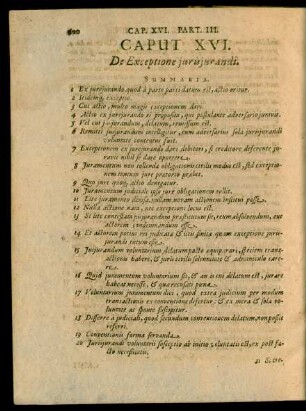 CAP. XVI. PART. III.
CAPUT XVI.
De Exceptione jurisjurandi.
SUMMARIA.
1 Ex jurejurando, quod a parte parti datum est, actio oritur.
2 Itidemq; exceptio.
3 Cui actio, multo magis exceptionem dari.
4 Actio ex jurejurando ei proposita, qui postulante adversario juravit.
5 Vel cui jusjurandum, delatum, remissum est.
6 Remitti jusjurandum intelligitur, cum adversarius sola jurisjurandi
voluntate contentus fuit.
7 Exceptionem ex jurejurando dari debitori, si creditore deferente ju-
ravit nihil se dare oportere.
8 Juramentum non tollendæ obligationis civilis modus est, sed exceptio-
nem tantum jure prætorio producit.
9 Quo jure quæq; actio elongatur.
10 Juramentum judiciale ipso jure obligationem tollit.
11 Lite juramento decisa, nullam novam actionem institui posse.
12 Nulla actione nata, nec exceptioni locus est.
13 Si lite contestata jusjurandum præstitum sit, reum absolvendum, aut
actorem condemnandum esse.
14 Et actorem potius rei judicatæ & litis finitæ quam exceptione juris-
jurandi tutum esse.
15 Jusjurandum voluntarium delatum pacto æquiparari, speciem trans-
actionis habere, & juris civilis solennitate & adminiculo care-
re.
16 Quid juramentum voluntarium sit, & an is cui delatum est, jurare
habeat necesse, & quæ recusati poena.
17 Voluntarium juramentum dici, quod extra judicium per modum
transactionis ex conventione defertur, & ex mera & sola vo-
luntate ac sponte suscipitur.
18 Differre a judiciali, quod secundum conventionem delatum, non possit
referri.
19 Conventionis forma servanda.
20 Jurisjurandi voluntarii susceptio ab initio voluntatis est, ex post fac-
to necessitatis.